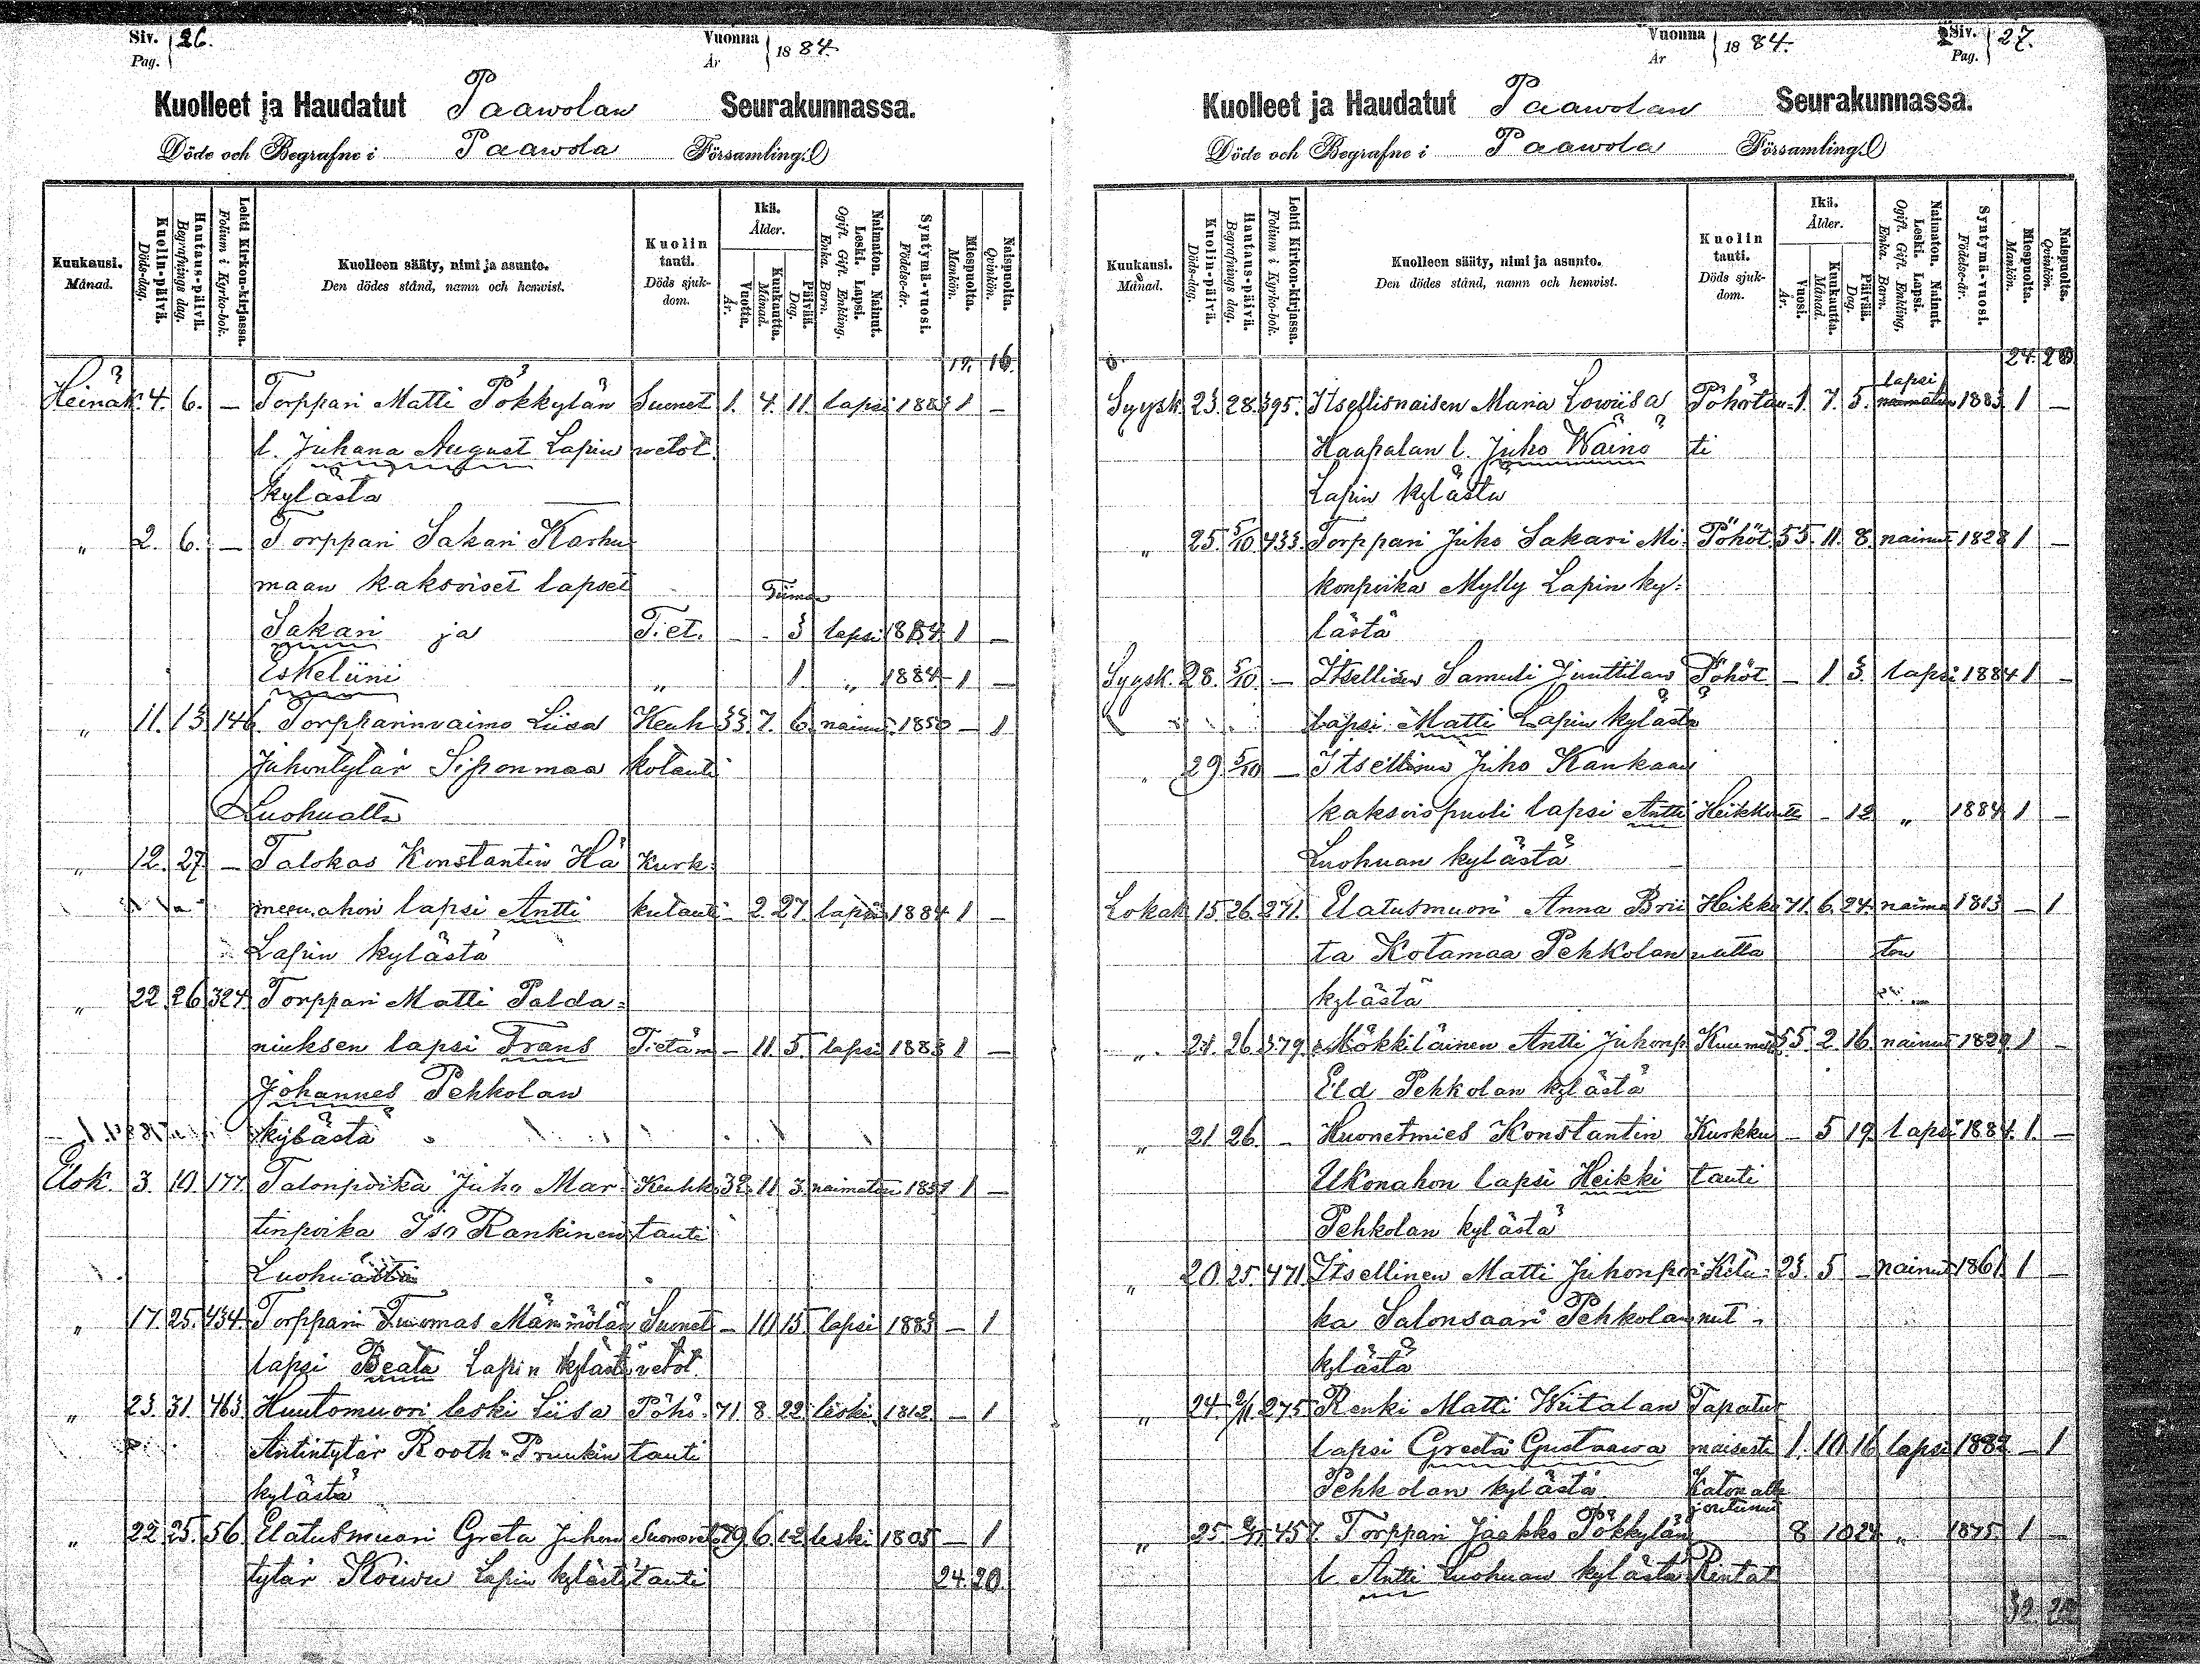 Siv. 26.
Pag.
Vuonna 1884.
År
Kuolleet ja Haudatut Paawolan Seurakunnassa.
Döde och Begrafne i Paawola Församling.
Kuukausi. Månad.
Kuolin-päivä. Döds-dag.
Hautaus-päivä. Begrafnings dag.
Lehti Kirkon-kirjassa. Folium i Kyrko-bok.
Kuolleen sääty, nimi ja asunto.
Den dödes stånd, namn och hemvist.
Kuolin tauti. Döds sjukdom.
Ikä. Ålder.
Vuotta. År.
Kuukautta. Månad.
Päivää. Dag.
Naimaton. Nainut. Leski. Lapsi.
Ogift. Gift. Enkling. Enka. Barn.
Syntymä-vuosi. Födelse-år.
Miespuolta. Mankön.
Naispuolta. Qvinkön.
19. 16.
Heinäk. 4. 6. — Torppari Matti Pökkylän Suonet 1. 4. 11 lapsi 1883 1 —
l. Juhana August Lapin vetot.
kylästä
„ 2. 6. — Torppari Sakari Karhu
maan kaksoiset lapset
Tiimaa
Sakari ja T.et. - - 3 lapsi 1884 1 —
Eskeliini „ 1. „ 1884 1 —
„ 11. 13. 146. Torpparinvaimo Liisa Keuh 33. 7. 6. nainut 1850 — 1
Juhontytär Siponmaa kotauti
Luohualta
„ 12. 27. — Talokas Konstantin Hä Kurk-
meenahon lapsi Antti kutauti - 2. 27. lapsi 1884 1 —
Lapin kylästä
„ 22. 26. 324. Torppari Matti Palda-
niuksen lapsi Frans Tietäm — 11. 5. lapsi 1883 1 —
Johannes Pehkolan
kylästä
Elok. 3. 10. 177. Talonpoika Juho Mar Keuhk. 32. 11 3. naimaton 1851 1 —
tinpoika Iso Rankinen tauti
Luohualta
„ 17. 25. 434. Torppari Tuomas Mämmölän Suonet — 10 15. lapsi 1883 — 1
lapsi Beata Lapin kylästä vetot.
„ 23. 31. 463 Huutomuori leski Liisa Pöhö- 71 8 22 leski 1812 — 1
Antintytär Rooth Pruukin tauti
kylästä
„ 22 25. 56. Elatusmuori Greta Juhon Suonveto 79. 6. 12 leski 1805 — 1
tytär Koiwu Lapin kylästä tauti 24. 20.
Vuonna 1884.
År
Siv. 27.
Pag.
Kuolleet ja Haudatut Paawolan Seurakunnassa.
Döde och Begrafne i Paawola Församling.
Kuukausi. Månad.
Kuolin-päivä. Döds-dag.
Hautaus-päivä. Begrafnings dag.
Lehti Kirkon-kirjassa. Folium i Kyrko-bok.
Kuolleen sääty, nimi ja asunto.
Den dödes stånd, namn och hemvist.
Kuolin tauti. Döds sjukdom.
Ikä. Ålder.
Vuosi. År.
Kuukautta. Månad.
Päivää. Dag.
Naimaton. Nainut. Leski. Lapsi.
Ogift. Gift. Enkling. Enka. Barn.
Syntymä-vuosi. Födelse-år.
Miespuolta. Mankön.
Naispuolta. Qvinkön.
24. 20
Syysk. 23. 28. 395. Itsellisnaisen Maria Lowiisa Pöhötau- 1. 7. 5. lapsi 1883. 1 —
Haapalan l. Juho Wäinö ti
Lapin kylästä
„ 25. 5/10 433. Torppari Juho Sakari Mi- Pöhöt. 55. 11. 8. nainut 1828 1 —
konpoika Mylly Lapin ky-
lästä
Syysk. 28. 5/10. — Itsellisen Samuli Junttilan Pöhöt — 1. 3. lapsi 1884 1 —
lapsi Matti Lapin kylästä
„ 29. 5/10 — Itsellisen Juho Kankaan
kaksoispuoli lapsi Antti Heikkoutta — 12 „ 1884 1 —
Luohuan kylästä
Lokak. 15. 26. 271. Elatusmuori Anna Brii Heikko 71. 6. 24. naima 1813 — 1
ta Kotamaa Pehkolan utta ton
kylästä
„ 21. 26. 379. Mökkiläinen Antti Juhonp. 55. 2. 16. nainut 1829 1 —
Eld Pehkolan kylästä
„ 21 26. - Huonetmies Konstantin Kurkku — 5 19. lapsi 1884. 1. —
Ukonahon lapsi Heikki tauti
Pehkolan kylästä
„ 20. 25. 471 Itsellinen Matti Juhonpoi 23. 5 — nainut 1861. 1 —
ka Salonsaari Pehkolan
kylästä
„ 24. 2/11 275 Renki Matti Wiitalan Tapatur
lapsi Greeta Gustaawa maisesti 1. 10. 16 lapsi 1882 — 1
Pehkolan kylästä Katon alle
joutunut
„ 25. 2/11 457. Torppari Jaakko Pökkylän 8 10 24 „ 1875. 1 —
l. Antti Luohuan kylästä Rintat
32. 22